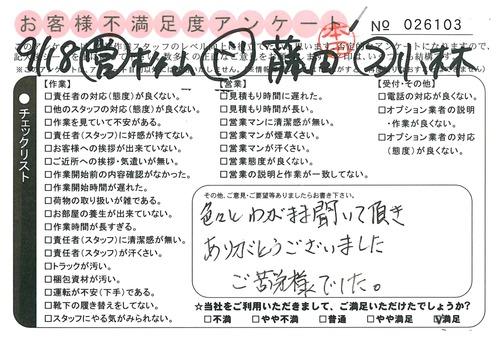 お客様不満足度アンケート
№ 026103
チェックリスト
【作業】
□責任者の対応(態度)が良くない。
□他のスタッフの対応(態度)が良くない。
□作業を見ていて不安がある。
□責任者(スタッフ)に好感が持てない。
□お客様への挨拶が出来ていない。
□ご近所への挨拶・気遣いが無い。
□作業開始前の内容確認がなかった。
□作業開始時間が遅れた。
□荷物の取り扱いが雑である。
□お部屋の養生が出来ていない。
□作業時間が長すぎる。
□責任者(スタッフ)に清潔感が無い。
□責任者(スタッフ)が汗くさい。
□トラックが汚い。
□梱包資材が汚い。
□運転が不安(下手)である。
□靴下の履き替えをしてない。
□スタッフにやる気がみられない。
【営業】
□見積もり時間に遅れた。
□見積もり時間が長い。
□営業マンに清潔感が無い。
□営業マンが煙草くさい。
□営業マンが汗くさい。
□営業態度が良くない。
□営業の説明と作業が一致してない。
【受付・その他】
□電話の対応が良くない。
□オプション業者の説明
・作業が良くない。
□オプション業者の対応
(態度)が良くない。
その他、ご意見・ご要望等ありましたらお書き下さい。
色々とわがまま聞いて頂き
ありがとうございました
ご苦労様でした。
☆当社をご利用いただきまして、ご満足いただけたでしょうか?
□不満 □やや不満 □普通 □やや満足 ☑満足